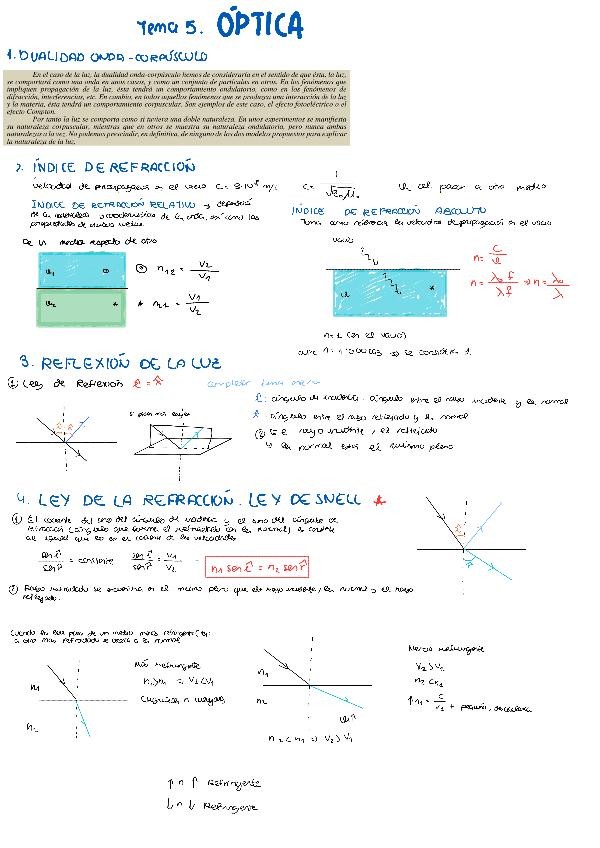 Tema 5. ÓPTICA
1. DUALIDAD ONDA-CORPÚSCULO
En el caso de la luz, la dualidad onda-corpúsculo hemos de considerarla en el sentido de que ésta, la luz,
se comportará como una onda en unos casos, y como un conjunto de partículas en otros. En los fenómenos que
impliquen propagación de la luz, ésta tendrá un comportamiento ondulatorio, como en los fenómenos de
difracción, interferencias, etc. En cambio, en todos aquellos fenómenos que se produzca una interacción de la luz
y la materia, ésta tendrá un comportamiento corpuscular. Son ejemplos de este caso, el efecto fotoeléctrico o el
efecto Compton.
Por tanto la luz se comporta como si tuviera una doble naturaleza. En unos experimentos se manifiesta
su naturaleza corpuscular, mientras que en otros se muestra su naturaleza ondulatoria, pero nunca ambas
naturalezas a la vez. No podemos prescindir, en definitiva, de ninguno de los dos modelos propuestos para explicar
la naturaleza de la luz.
2. ÍNDICE DE REFRACCIÓN
velocidad de propagación en el vacío c = 3·10⁸ m/s
al pasar a otro medio
ÍNDICE DE REFRACCIÓN RELATIVO → dependerá
de la naturaleza y características de la onda, así como las
propiedades de
De un medio respecto de otro
n₁₂ = v₂/v₁
n₂₁ = v₁/v₂
ÍNDICE DE REFRACCIÓN ABSOLUTO
Toma como referencia la velocidad de propagación en el vacío
vacío
n = c/v
n = λ₀ f / λ f ⇒ n = λ₀/λ
n = 1 (en el vacío)
aire n = 1'00003 → se considera 1.
3. REFLEXIÓN DE LA LUZ
① Ley de Reflexión î = r̂
î: ángulo de incidencia. ángulo entre el rayo incidente y la normal
r̂: ángulo entre el rayo reflejado y la normal
② el rayo incidente, el reflejado
y la normal están el mismo plano
4. LEY DE LA REFRACCIÓN. LEY DE SNELL
① El cociente del seno del ángulo de incidencia y el seno del ángulo de
refracción (ángulo que forma el refractado con la normal) es constante
al igual que lo es el cociente de las velocidades
sen î / sen r̂ = constante
sen î / sen r̂ = v₁/v₂
n₁ sen î = n₂ sen r̂
② Rayo refractado se encuentra en el mismo plano que el rayo incidente, la normal y el rayo
reflejado.
Cuando la luz pasa de un medio menos refringente
a otro más refractado se acerca a la normal
n₁
n₂
Más refringente
n₂>n₁ ⇒ v₂<v₁
n₁
n₂
n₂ < n₁ ⇒ v₂ > v₁
Menos refringente
v₂ > v₁
n₂ < n₁
↑ n ↑ Refringente
↓ n ↓ Refringente